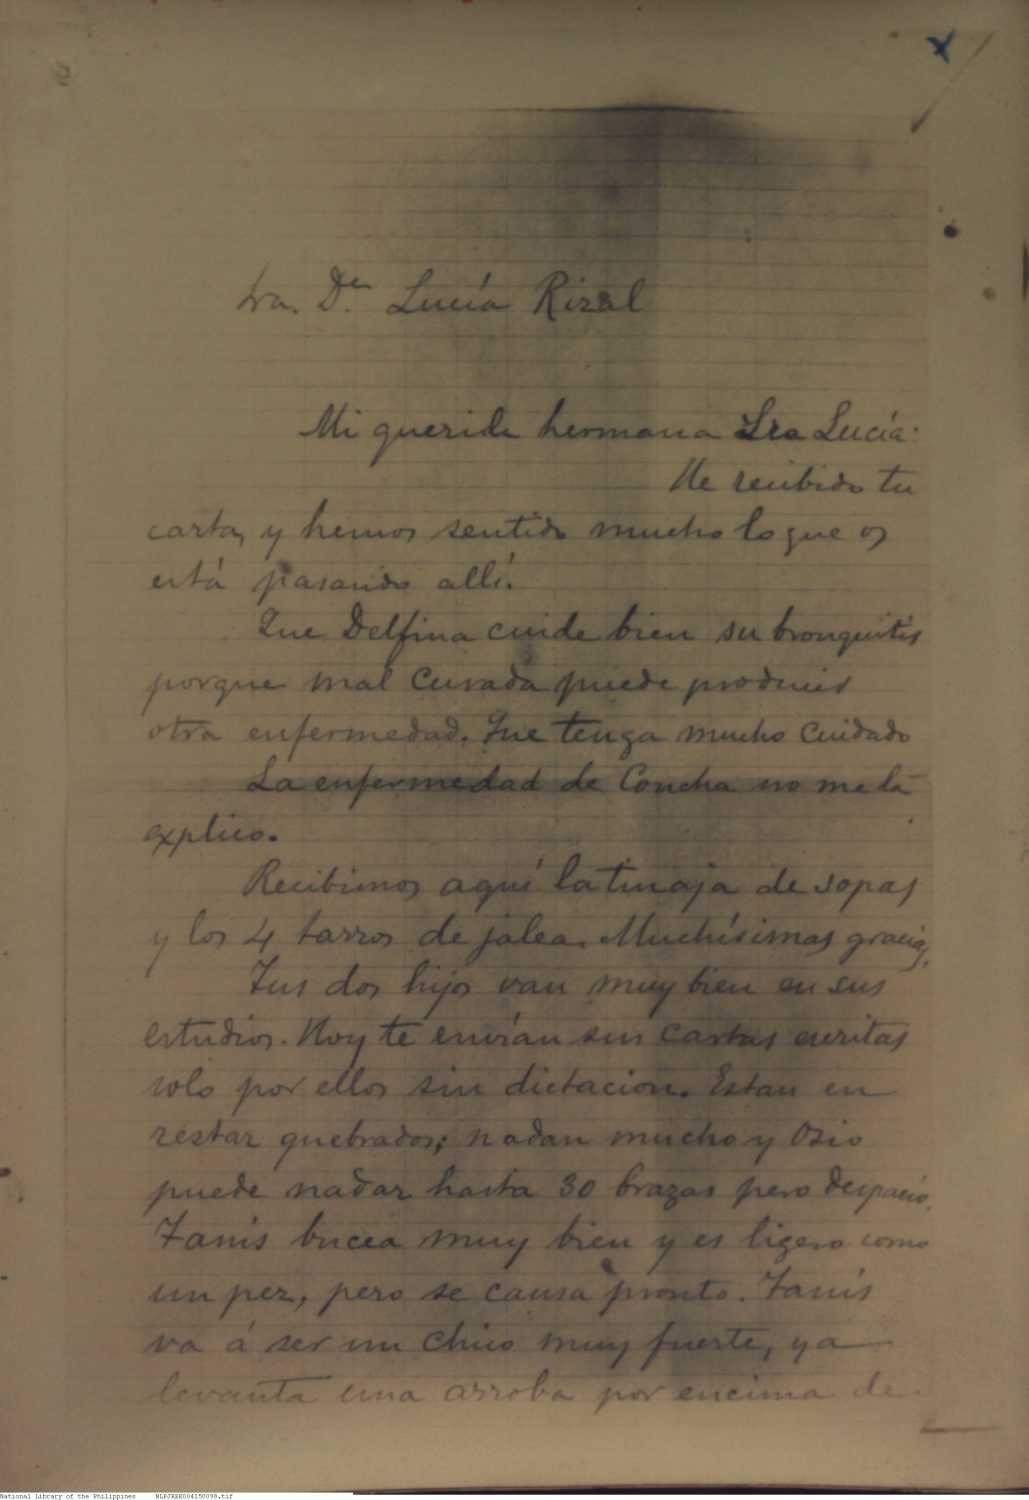 Sra. Dª Lucía Rizal
Mi querida hermana Sra Lucía:
He recibido tu
carta, y hemos sentido mucho lo que os
está pasando allí.
Que Delfina cuide bien su bronquitis
porque mal curada puede producir
otra enfermedad. Que tenga mucho cuidado
La enfermedad de Concha no me la
explico.
Recibimos aquí la tinaja de sopas
y los 4 tarros de jalea. Muchísimas gracias.
Tus dos hijos van muy bien en sus
estudios. Hoy te envían sus cartas escritas
solo por ellos sin dictacion. Estan en
restar quebrados; nadan mucho y Osio
puede nadar hasta 30 brazas pero despacio.
Tanis bucea muy bien y es ligero como
un pez, pero se cansa pronto. Tanis
va á ser un chico muy fuerte, ya
levanta una arroba por encima de
National Library of the Philippines